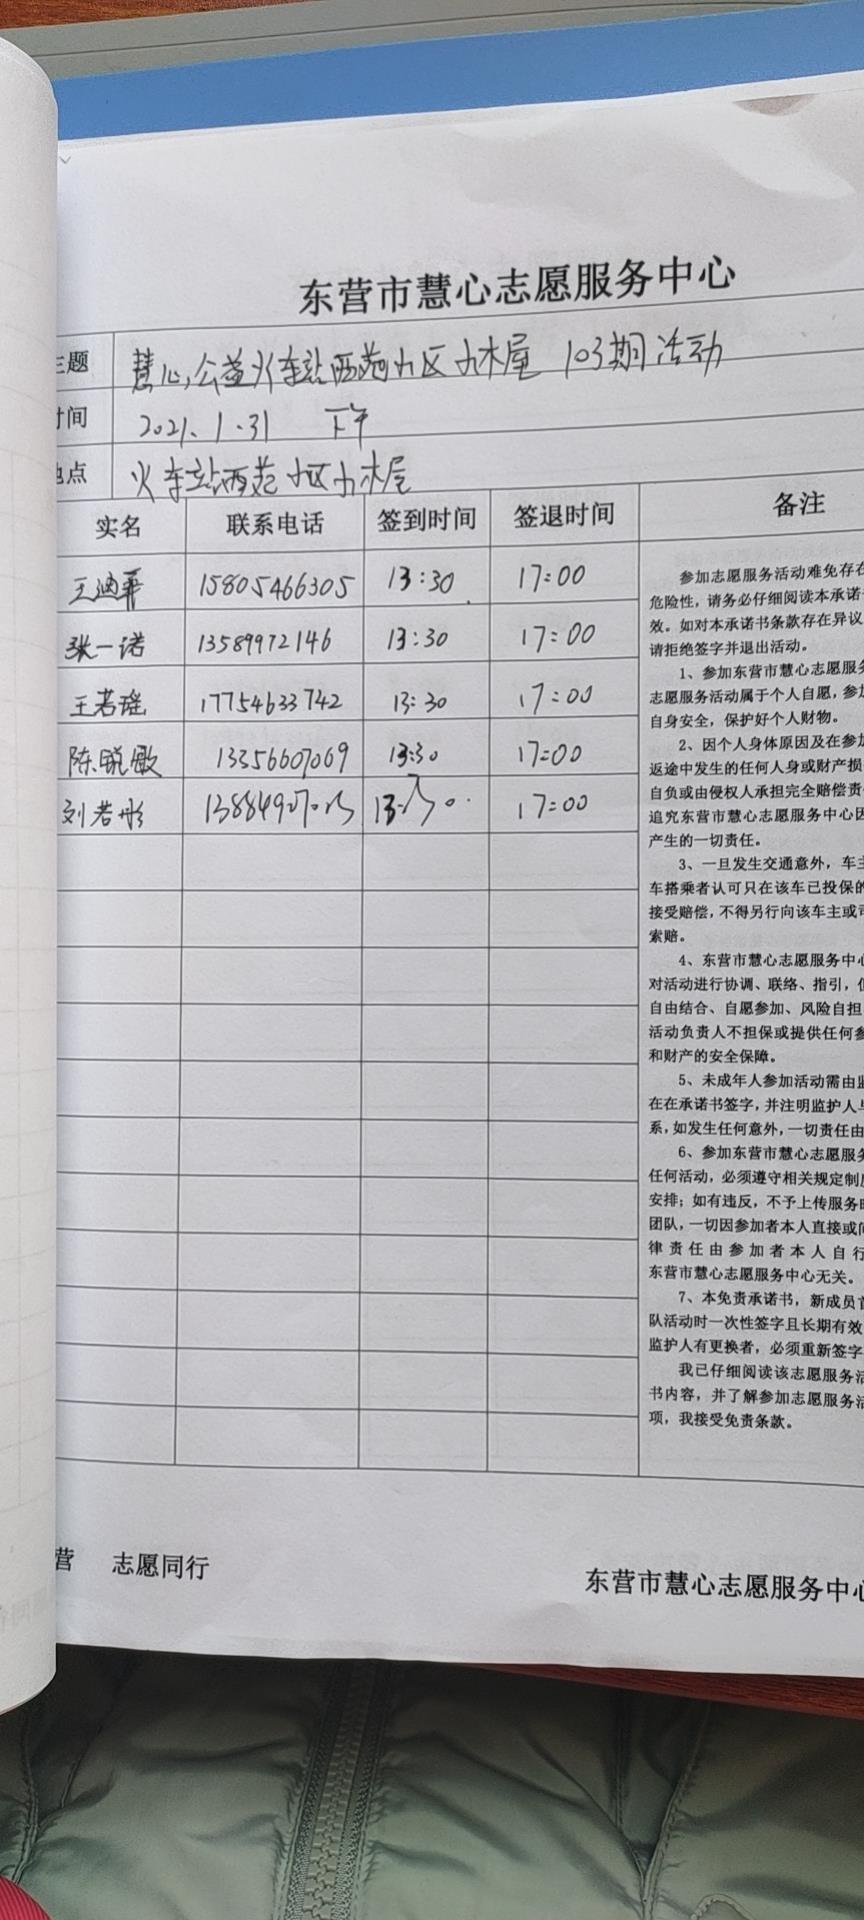 东营市慧心志愿服务中心
主题 慧心公益火车站西苑小区小木屋 103期活动
时间 2021.1.31 下午
地点 火车站西苑小区小木屋
实名 联系电话 签到时间 签退时间 备注
王迪菲 15805466305 13:30 17:00
张一诺 13589972146 13:30 17:00
王若瑶 17754633742 13:30 17:00
陈晓敏 13356607069 13:30 17:00
刘若彤 13:30 17:00
参加志愿服务活动难免存在
危险性，请务必仔细阅读本承诺
效。如对本承诺书条款存在异议
请拒绝签字并退出活动。
1、参加东营市慧心志愿服务
志愿服务活动属于个人自愿，参加
自身安全，保护好个人财物。
2、因个人身体原因及在参加
返途中发生的任何人身或财产损
自负或由侵权人承担完全赔偿责
追究东营市慧心志愿服务中心因
产生的一切责任。
3、一旦发生交通意外，车主
车搭乘者认可只在该车已投保的
接受赔偿，不得另行向该车主或司
索赔。
4、东营市慧心志愿服务中心
对活动进行协调、联络、指引，但
自由结合、自愿参加、风险自担
活动负责人不担保或提供任何参
和财产的安全保障。
5、未成年人参加活动需由监
在在承诺书签字，并注明监护人与
系，如发生任何意外，一切责任由
6、参加东营市慧心志愿服务
任何活动，必须遵守相关规定制度
安排；如有违反，不予上传服务时
团队，一切因参加者本人直接或间
律责任由参加者本人自行
东营市慧心志愿服务中心无关。
7、本免责承诺书，新成员首
队活动时一次性签字且长期有效
监护人有更换者，必须重新签字
我已仔细阅读该志愿服务活
书内容，并了解参加志愿服务活
项，我接受免责条款。
营 志愿同行 东营市慧心志愿服务中心